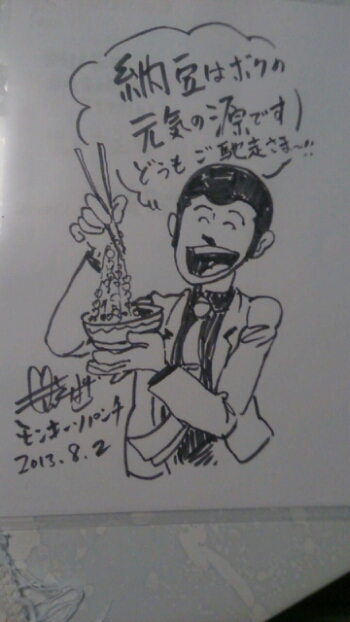 納豆はボクの
元気の源です
どうもご馳走さま〜!!
モンキーパンチ
2013.8.2